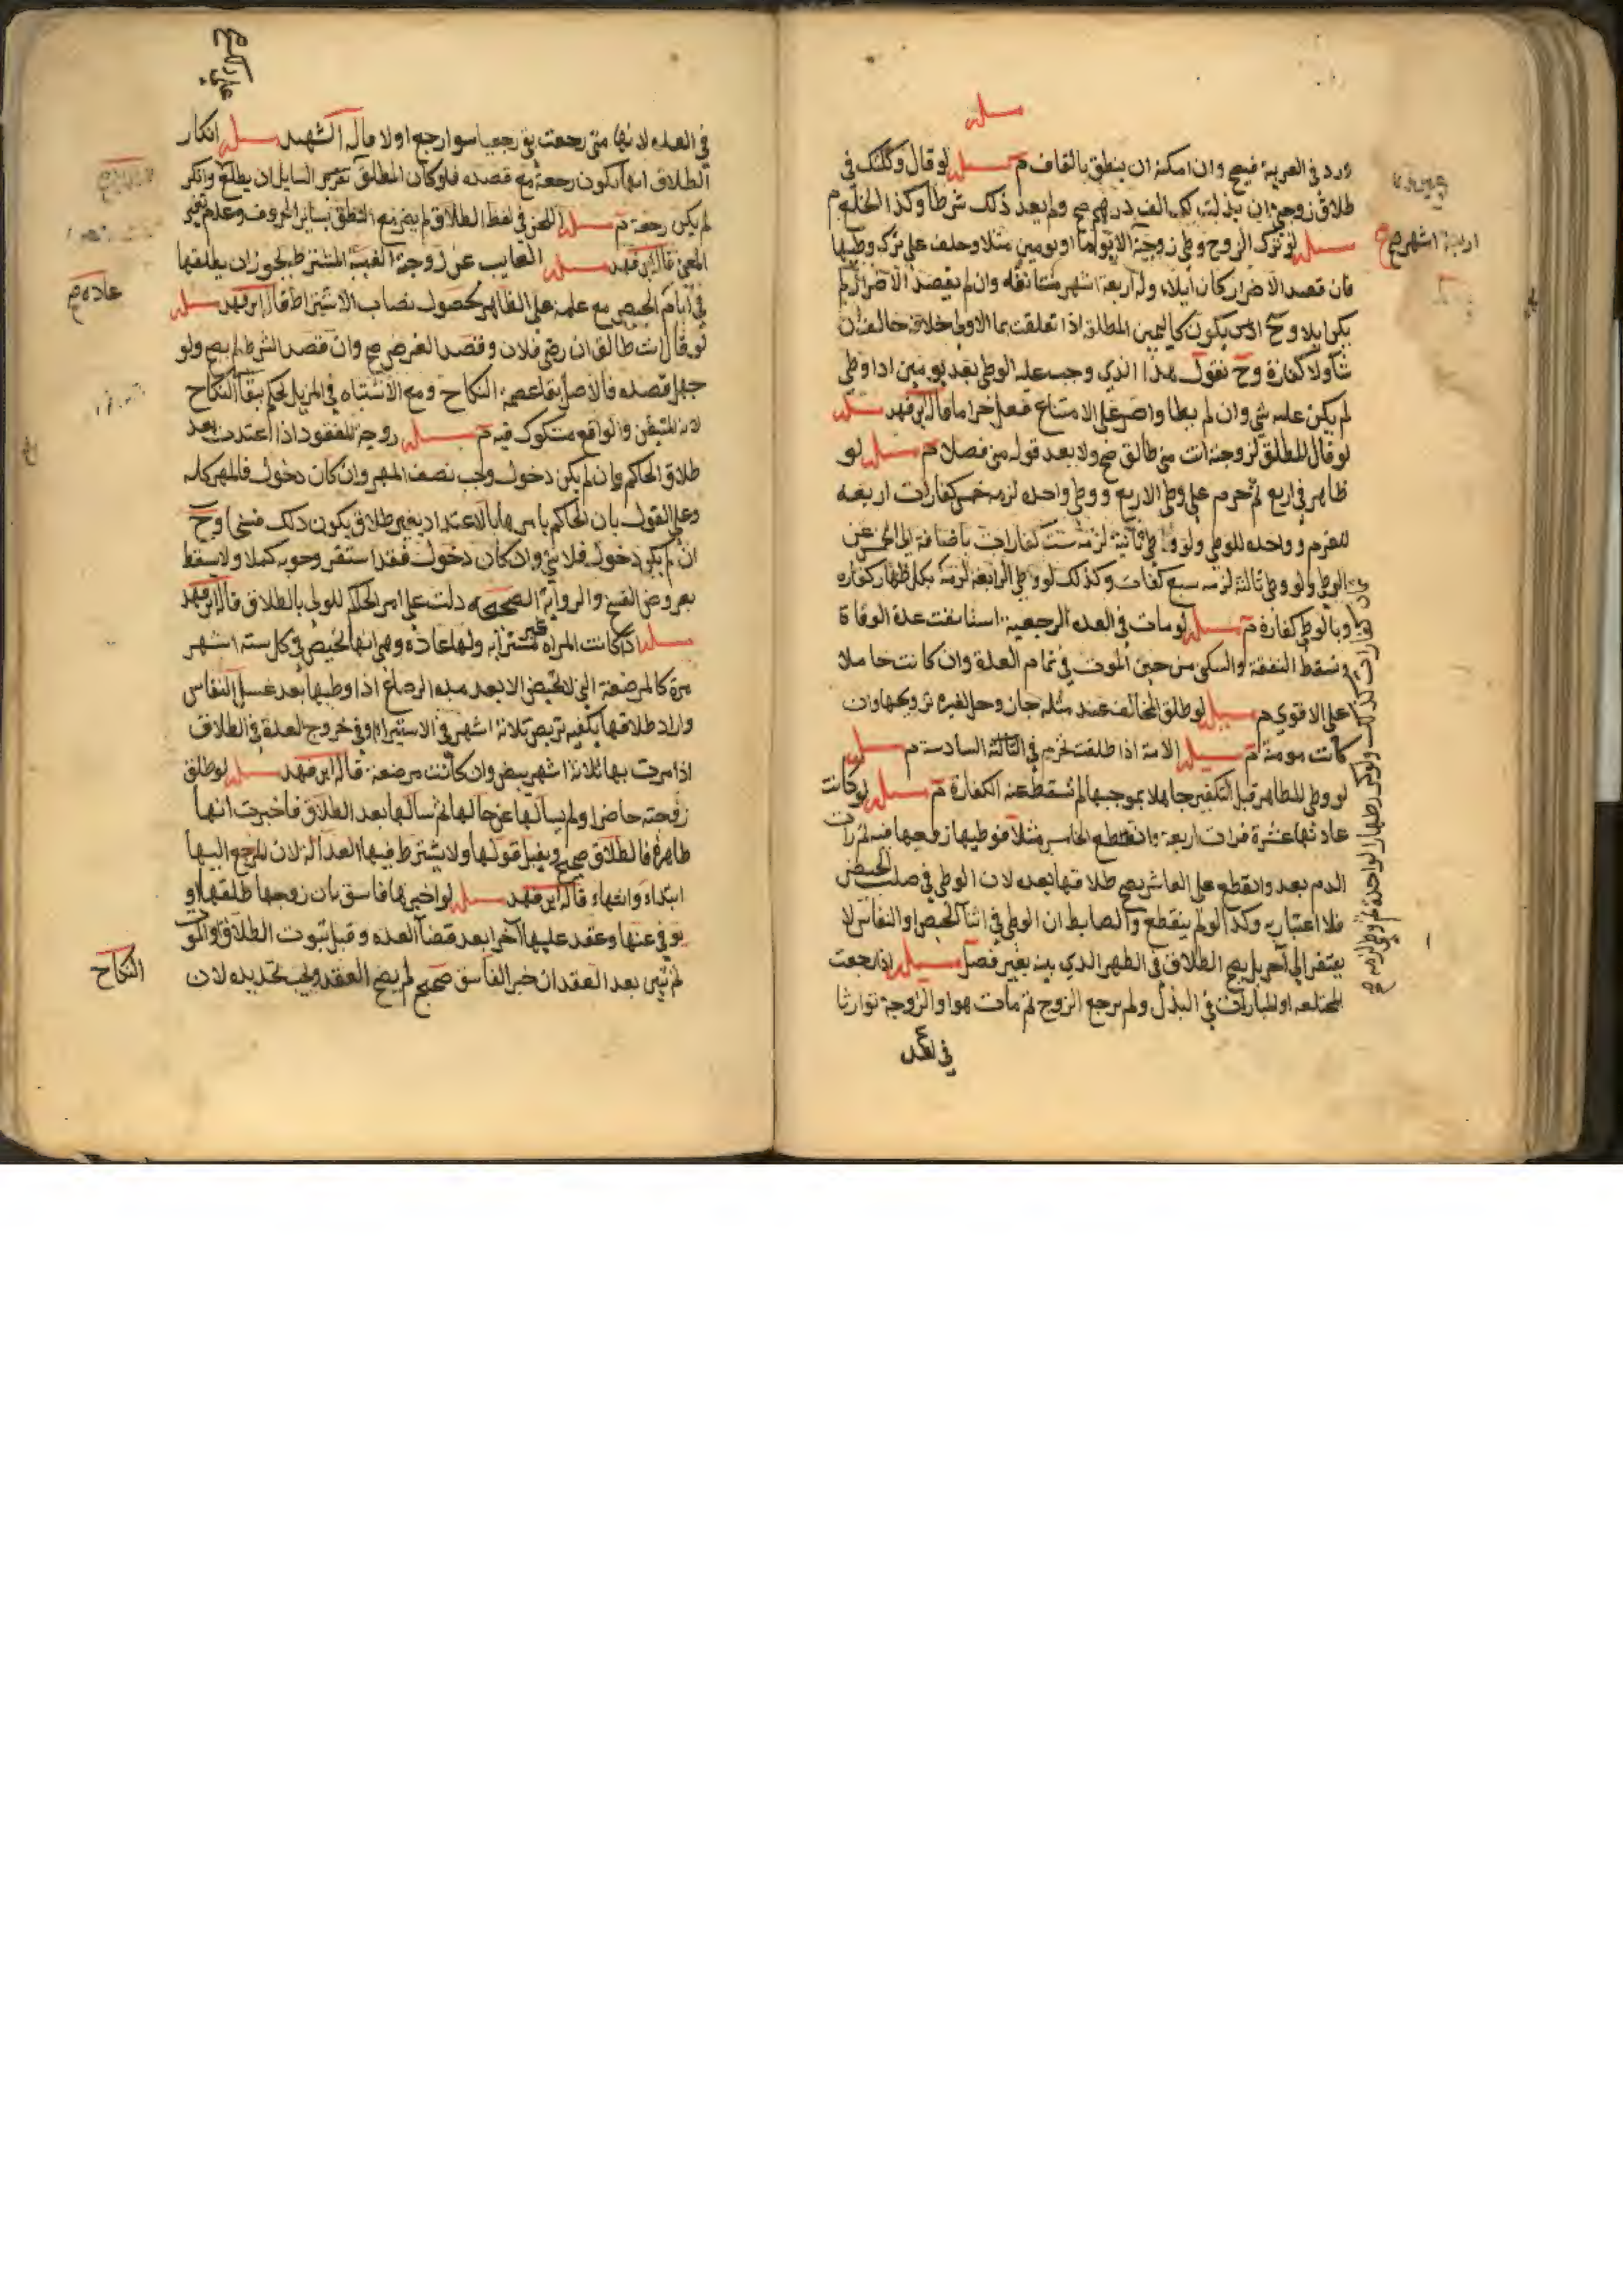 مسله
ورد في العربية فيصح وان امكنه ان ينطق بالقاف م مسله لو قال وكلتك في
طلاق زوجتي ان بذلت لك الف درهم صح ولم يعد ذلك شرطا وكذا الخلع م
مسله لو ترك الزوج وطي زوجته الا يوما او يومين مثلا وحلف على ترك وطيها
فان قصد الاضرار كان ايلاء وله اربعة اشهر مستانفه وان لم يقصد الاضرار لم
يكن ايلا وح يكون كاليمين المطلق اذا تعلقت بما الاولى خلافه خالف ان
شا ولا كفارة وح نقول هذا الذي وجب عليه الوطي بعد يومين اذا وطي
لم يكن عليه شي وان لم يطا واصر على الامتناع فعل حراما قال ابن فهد مسله
لو قال المطلق لزوجته انت مني طالق صح ولا يعد قوله مني فصلا م مسله لو
ظاهر في اربع ثم عزم على وطي الاربع ووطي واحده لزمه خمس كفارات اربعه
للعزم وواحده للوطي ولو وطي ثانية لزمه ست كفارات باضافة الى الخمس عن
الوطي ولو وطي ثالثة لزمه سبع كفارات وكذلك لو وطي الرابعة لزمه بكل ظهار كفاره
وبالوطي كفارة م مسله لو مات في العده الرجعية استانفت عدة الوفاة
وتسقط النفقة والسكنى من حين الموت في تمام العدة وان كانت حاملا
على الاقوي م مسله لو طلق المخالف عند مثله جاز وحل لغيره تزويجها وان
كانت مومنة م مسله الامة اذا طلقت تحرم في الثالثة السادسة م مسله
لو وطي المظاهر قبل التكفير جاهلا بموجبها لم تسقط عنه الكفارة م مسله لو كانت
عادتها عشرة فرات اربعة وانقطع الخامس مثلا فوطيها زوجها فيه ثم رات
الدم بعد وانقطع على العاشر يصح طلاقها بعده لان الوطي في صلب الحيض
فلا اعتبار به وكذا لو لم ينقطع والضابط ان الوطي في اثنا الحيض او النفاس لا
يفتقر الى آخر بل يصح الطلاق في الطهر الذي يليه بغير فصل مسله اذا رجعت
المختلعه او المبارات في البذل ولم يرجع الزوج ثم مات هو او الزوجة توارثا
في العده
اربعة اشهر صح
في العده لانها متى رجعت بقي رجعيا سوا رجع او لا قاله الشهيد مسله انكار
الطلاق انما يكون رجعة مع قصده فلو كان المطلق تقرير السايل ان يطلق وانكر
لم يكن رجعة م مسله اللحن في لفظ الطلاق لم يضر مع النطق بساير الحروف وعدم تغير
المعنى قاله ابن فهد مسله الغايب عن زوجته الغيبة المشترط يجوز ان يطلقها
في ايام الحيض مع علمه على الظاهر لحصول نصاب الاشتراط قاله ابن فهد مسله
لو قال انت طالق ان رضي فلان وقصد الغرض صح وان قصد الشرط لم يصح ولو
جهل قصده فالاصل بقا عصمة النكاح ومع الاشتباه في المزيل يحكم ببقا النكاح
لانه المتيقن والواقع مشكوك فيه م مسله زوجة المفقود اذا اعتدت بعد
طلاق الحاكم وان لم يكن دخول وجب نصف المهر وان كان دخول فالمهر كله
وعلى القول بان الحاكم يامرها بالاعتداد بغير طلاق يكون ذلك فسخا وح
ان لم يكن دخول فلا شي وان كان دخول فقد استقر وجوبه كملا ولا يسقط
بعروض الفسخ والرواية الصحيحه دلت على امر الحاكم للولي بالطلاق قاله ابن فهد
مسله اذا كانت المراه غير مسترابه ولها عاده وهي انها تحيض في كل ستة اشهر
مرة كالمرضعة التي لا تحيض الا بعد مدة الرضاع اذا وطيها بعد غسل النفاس
واراد طلاقها يكفيه تربص ثلاثة اشهر في الاستبراء وفي خروج العدة في الطلاق
اذا مرت بها ثلاثة اشهر بيض وان كانت مرضعة قاله ابن فهد مسله لو طلق
زوجته حاضرا ولم يسالها عن حالها ثم سالها بعد الطلاق فاخبرت انها
طاهرة فالطلاق صحيح ويقبل قولها ولا يشترط فيها العدالة لان المرجع اليها
ابتداء وانتهاء قاله ابن فهد مسله لو اخبرها فاسق بان زوجها طلقها او
توفي عنها وعقد عليها آخر بعد قضا العده وقبل ثبوت الطلاق والموت
ثم تبين بعد العقد ان خبر الفاسق صحيح لم يصح العقد ويجب تجديده لان
عاده م
النكاح